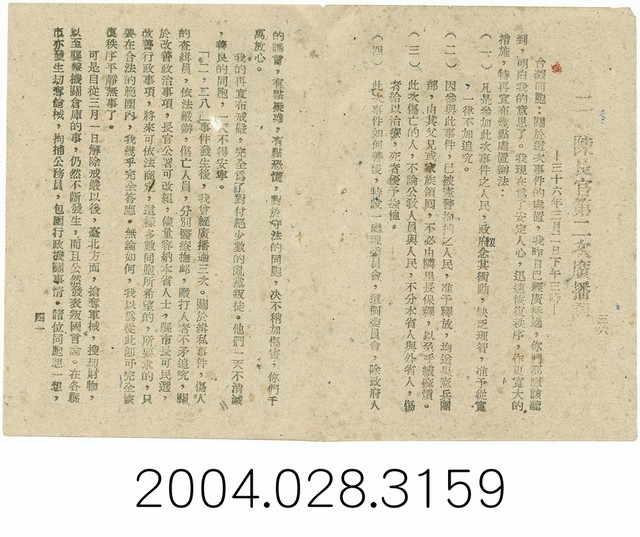 二　陳長官第二次廣播詞
—三十六年三月二日下午三時—
台灣同胞：關於這次事件的處置，我昨日已經廣播過，你們都應該聽
到，明白我的意思了。我現在為了安定人心，迅速恢復秩序，作更寬大的
措施，特再宣布幾點處置辦法：
（一）凡是參加此次事件之人民，政府念其衝動，缺乏理智，准予從寬
一律不加追究。
（二）因參與此事件，已被憲警拘捕之人民，准予釋放，均送集憲兵團
部，由其父兄或家族領回，不必由鄰里長保釋，以免手續麻煩。
（三）此次傷亡的人，不論公教人員與人民，不分本省人與外省人，傷
者給以治療，死者優予撫恤。
（四）此次事件如何善後，特設一處理委員會，這個委員會，除政府人
三六
的謠言，有點疑慮，有點恐慌，對於守法的同胞，決不稍加傷害，你們千
萬放心。
我的再宣布戒嚴，完全為了對付絕少數的亂黨叛徒。他們一天不消滅
，善良的同胞，一天不得安寧。
「二・二八」事件發生後，我曾經廣播過三次。關於緝私事件，傷人
的查緝員，依法嚴辦，傷亡人員，分別醫療撫卹，毆打人者不予追究，關
於改善政治事項，長官公署可改組，儘量容納本省人士，縣市長可民選，
改善行政事項，將來可依法商定，這樣多數同胞所希望的，所要求的，只
要在合法的範圍內，我幾乎完全答應。無論如何，我以為從此即可完全恢
復秩序平靜無事了。
可是自從三月一日解除戒嚴以後，臺北方面，搶奪軍械，搜刧財物，
以至襲擊機關倉庫的事，仍然不斷發生，而且公然發表叛國言論。在各縣
市亦發生刧奪鎗械，拘捕公務員，包圍行政機關事情。諸位同胞想一想，
四一
2004.028.3159